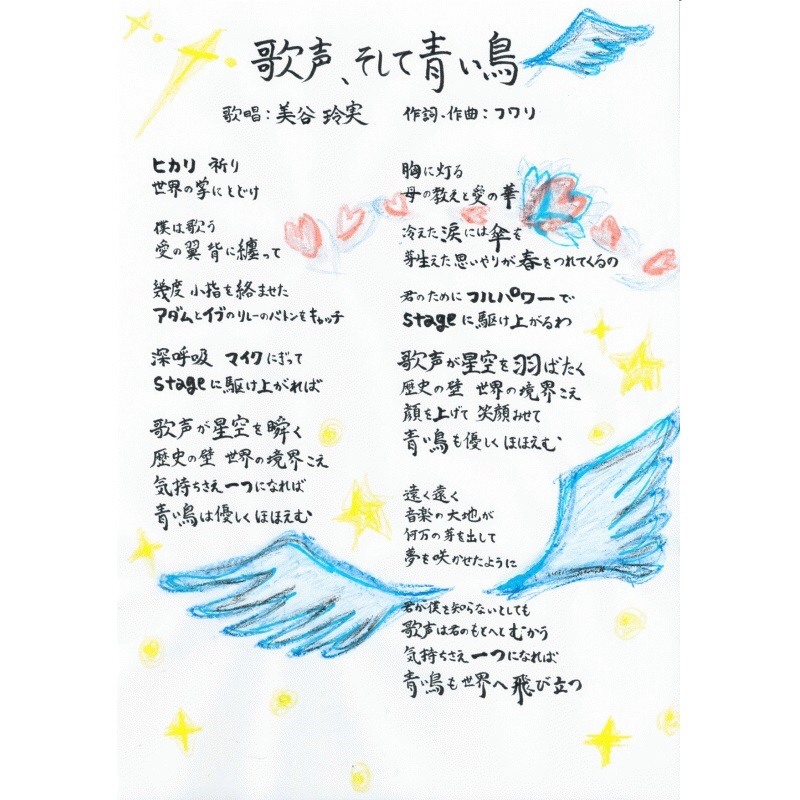 歌声、そして青い鳥
歌唱：美谷 玲実 作詞・作曲：フワリ
ヒカリ 祈り
世界の掌にとどけ
僕は歌う
愛の翼 背に纏って
幾度 小指を絡ませた
アダムとイブのリレーのバトンをキャッチ
深呼吸 マイクにぎって
stageに駆け上がれば
歌声が星空を瞬く
歴史の壁 世界の境界こえ
気持ちさえ一つになれば
青い鳥は優しくほほえむ
胸に灯る
母の教えと愛の華
冷えた涙には傘を
芽生えた思いやりが春をつれてくるの
君のためにフルパワーで
stageに駆け上がるわ
歌声が星空を羽ばたく
歴史の壁 世界の境界こえ
顔を上げて 笑顔みせて
青い鳥も優しくほほえむ
遠く遠く
音楽の大地が
何万の芽を出して
夢を咲かせたように
君が僕を知らないとしても
歌声は君のもとへとむかう
気持ちさえ一つになれば
青い鳥も世界へ飛び立つ